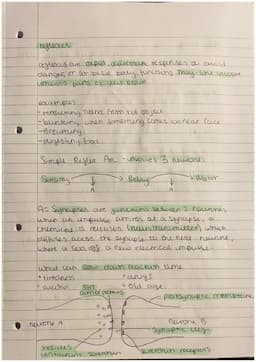 reflexes
reflexes are rapid, automatic responses to avoid
danger, or for basic body functions. They dont involve
conscious parts of your brain.
examples:
- removing hand from hot object
- blinking when something comes too near face
- Breathing
- digesting food
Simple Reflex Arc - involves 3 neurones:
Sensory Relay Effector
A A
A = Synapses are junctions between 2 neurones,
when an impulse arrives at a synapse, a
chemical is released (neurotransmitter) which
diffuses across the synapse to the next neurone,
where it sets off a new electrical impulse.
what can slow down reaction time
• tiredness • drugs
• alcohol • old age
presynaptic membrane
neurone A
Neurone B
Synaptic cleft
vesicles
containing
receptors